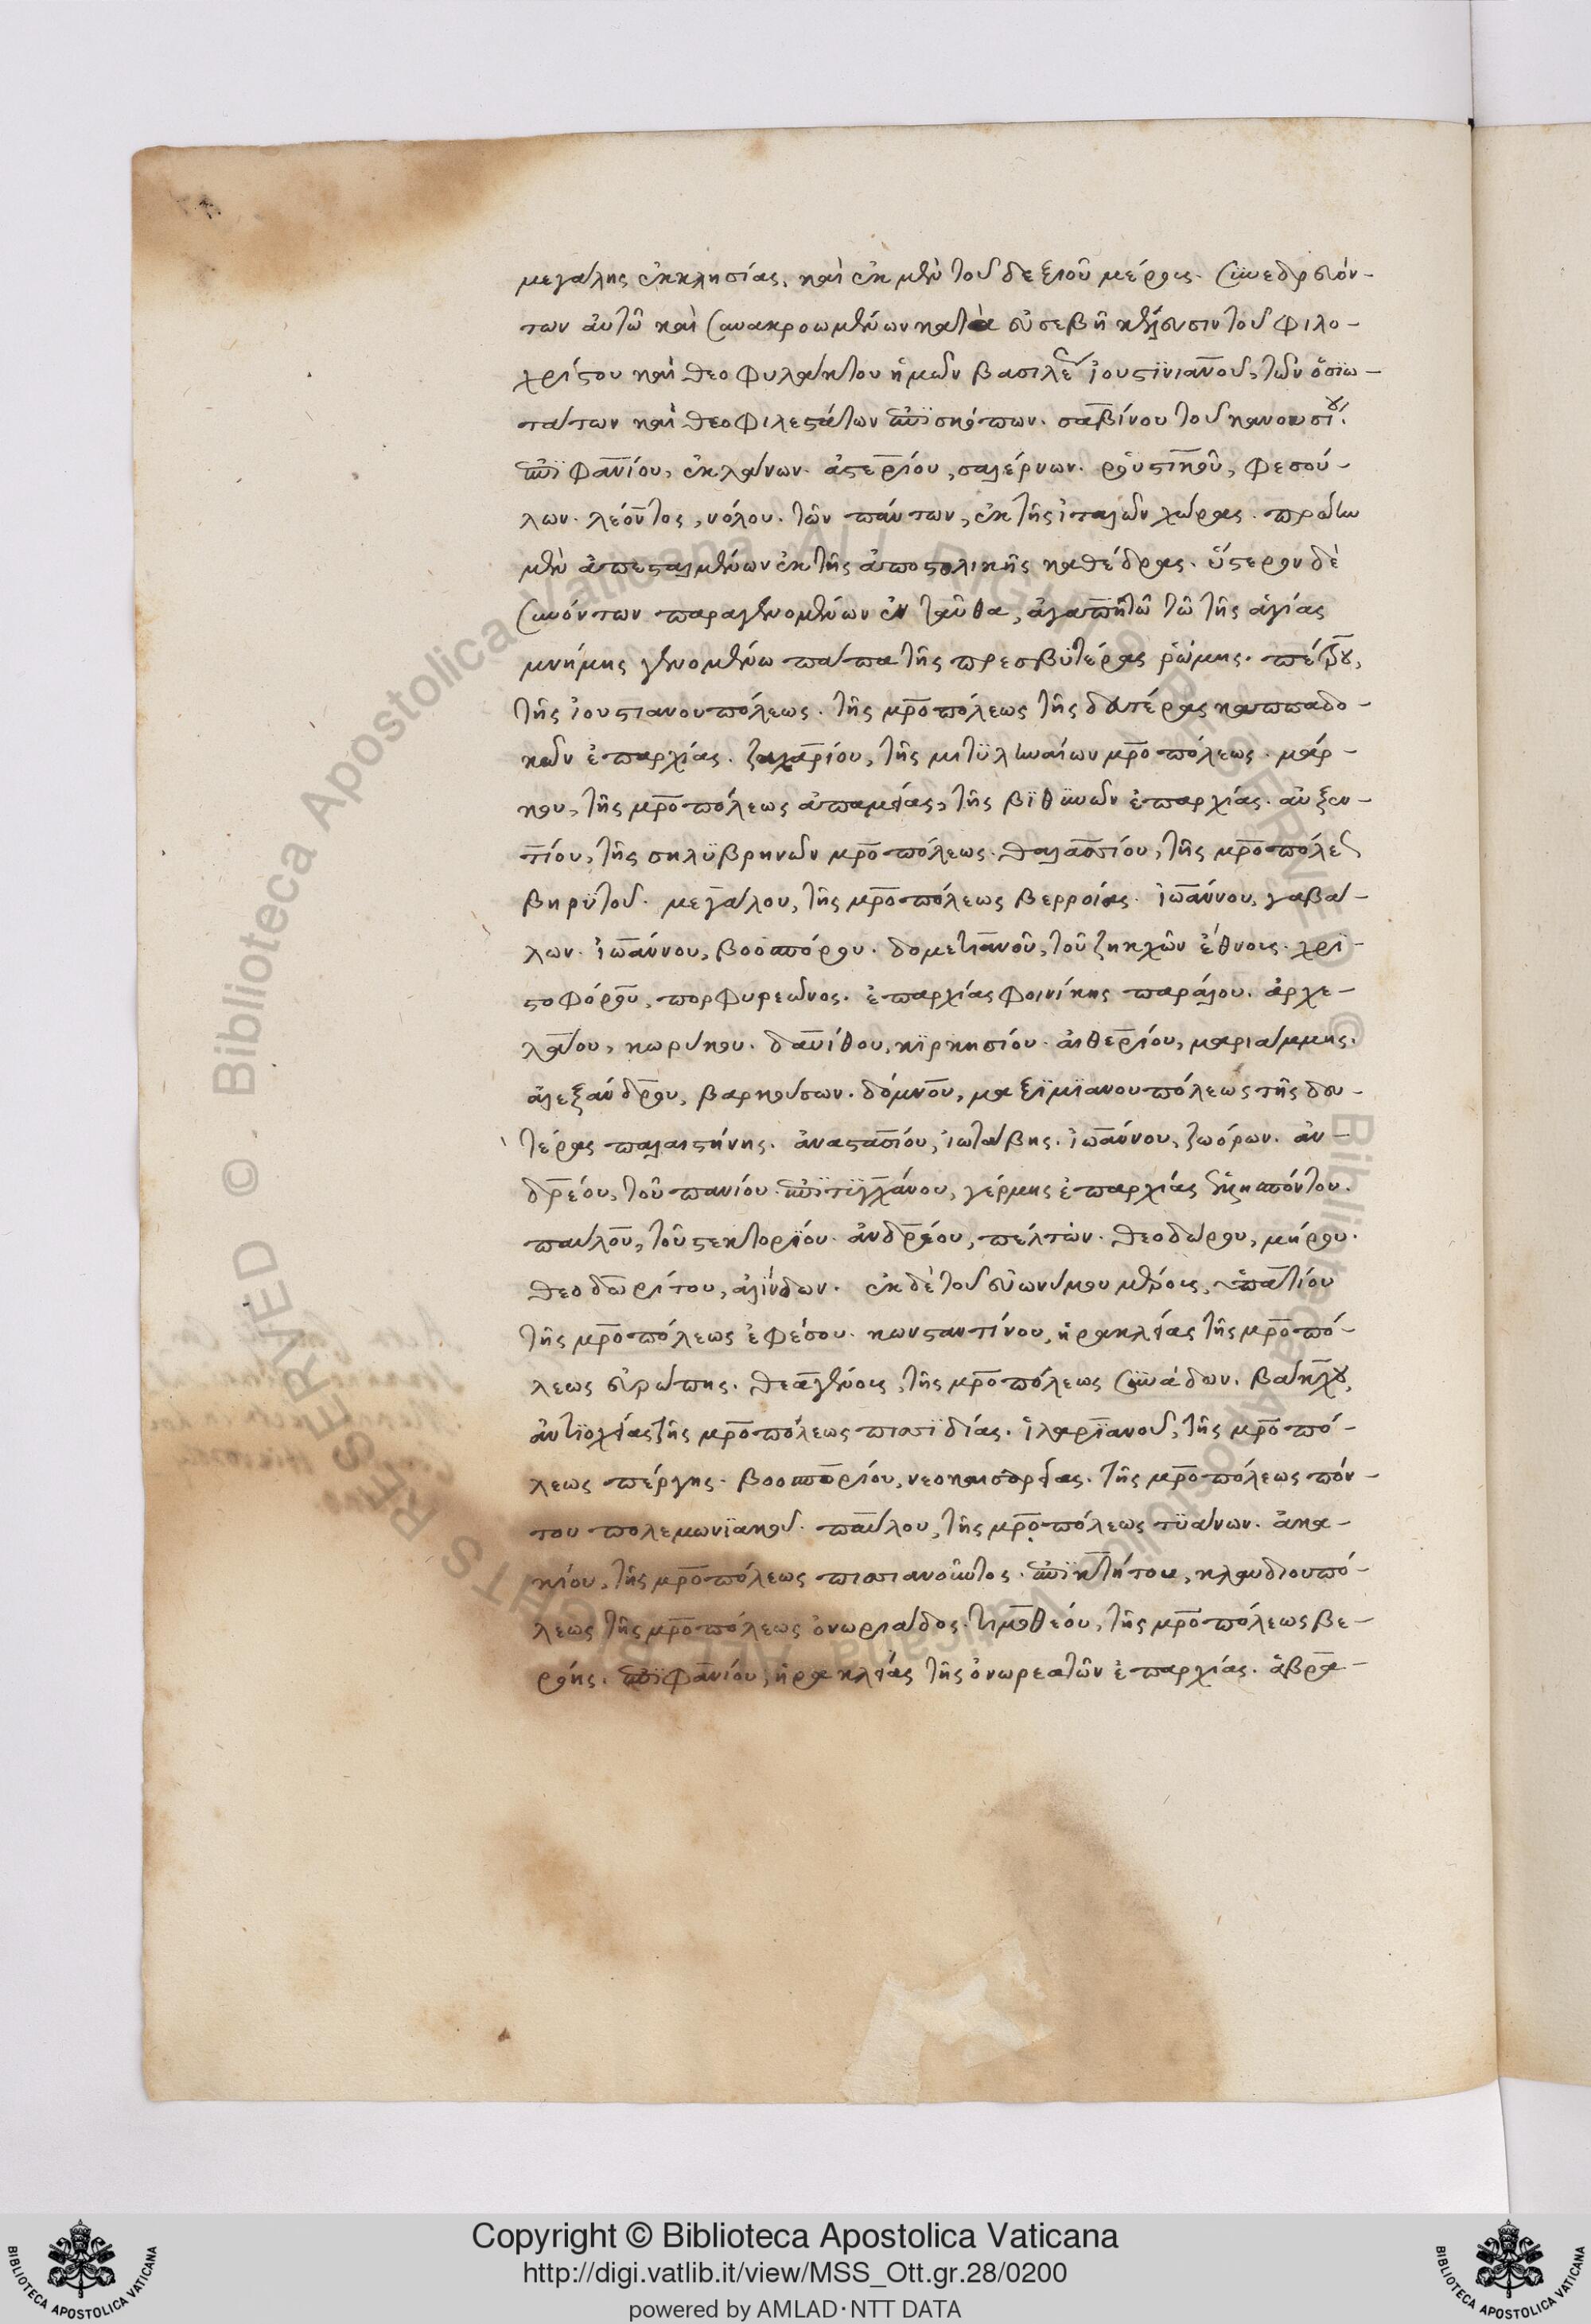 μεγάλης ἐκκλησίας, καὶ ἐκ μὲν τοῦ δεξιοῦ μέρους. συνεδρευόν-
των αὐτῶ καὶ συνακροωμένων κατὰ εὐσεβῆ κέλευσιν τοῦ φιλο-
χρίστου καὶ θεοφυλάκτου ἡμῶν βασιλέως ἰουστϊνιανοῦ, τῶν ὁσϊω-
τάτων καὶ θεοφιλεστάτων ἐπϊσκόπων. σαβίνου τοῦ κανουσίου.
ἐπϊφανίου, ἐκλάνων. ἀστερίου, σαλέρνων. ῥουστϊκοῦ, φεσού-
λων. λέοντος, νόλου. τῶν πάντων, ἐκ τῆς ἰταλῶν χώρας. πρώτου
μὲν ἀπεσταλμένων ἐκ τῆς ἀποστολικῆς καθέδρας. ὕστερον δὲ
συνόντων παραγενομένων ἐνταῦθα, ἀγαπητῶ τῶ τῆς ἁγίας
μνήμης γενομένω πάπα τῆς πρεσβϋτέρας ῥώμης. πέτρου,
τῆς ἰουστιανουπόλεως. τῆς μροπόλεως τῆς δευτέρας καππαδο-
κῶν ἐπαρχίας. ζαχαρίου, τῆς μιτϋληναίων μροπόλεως. μάρ-
κου, τῆς μροπόλεως ἀπαμείας, τῆς βϊθϋνῶν ἐπαρχίας. αὐξεν-
τίου, τῆς σηλϋβρηνῶν μροπόλεως. θαλασσίου, τῆς μροπόλεως
βηρϋτοῦ. μεγάλου, τῆς μροπόλεως βερροίας. ἰωάννου, γαβά-
λων. ἰωάννου, βοοσπόρου. δομετιανοῦ, τοῦ ζηκχῶν ἔθνους. χρϊ-
στοφόρου, πορφυρεῶνος. ἐπαρχίας φοινίκης παράλου. ἀρχε-
λάου, κωρύκου. δαυίθου, κϊρκησίου. αἰθερίου, μαριάμμης.
ἀλεξάνδρου, βαρκούσων. δόμνου, μαξϊμϊανουπόλεως τῆς δευ-
τέρας παλαιστήνης. ἀναστασίου, ἰωτάβης. ἰωάννου, ζωόρων. ἀν-
δρέου, τοῦ πανίου. ἐπϊτϋγχάνου, γέρμης ἐπαρχίας ἑλησπόντου.
παύλου, τοῦ στεκτορίου. ἀνδρέου, πέλτων. θεοδώρου, μήρου.
θεοδωρίτου, ἀλίνδων. ἐκ δὲ τοῦ εὐωνύμου μέρους, ὑπατίου
τῆς μροπόλεως ἐφέσου. κωνσταντίνου, ἡρακλείας τῆς μροπό-
λεως εὐρώπης. θεαγένους, τῆς μροπόλεως συνάδων. βακχου,
ἀντϊοχείας τῆς μροπόλεως πισσϊδίας. ἱλαρϊανοῦ, τῆς μροπό-
λεως πέργης. βοοσπορίου, νεοκαισαρείας. τῆς μροπόλεως πόν-
του πολεμωνϊακοῦ. παύλου, τῆς μροπόλεως τϋάνων. ἀκα-
κίου, τῆς μροπόλεως πισσιανοῦντος. ἐπϊκτήτου, κλαυδιουπό-
λεως τῆς μροπόλεως ὀνωριάδος. τιμοθέου, τῆς μροπόλεως βε-
ρόης. ἐπϊφανίου, ἡρακλείας τῆς ὀνωρεατῶν ἐπαρχίας. ἁβρα-
Copyright © Biblioteca Apostolica Vaticana
http://digi.vatlib.it/view/MSS_Ott.gr.28/0200
powered by AMLAD·NTT DATA
BIBLIOTECA APOSTOLICA VATICANA
BIBLIOTECA APOSTOLICA VATICANA